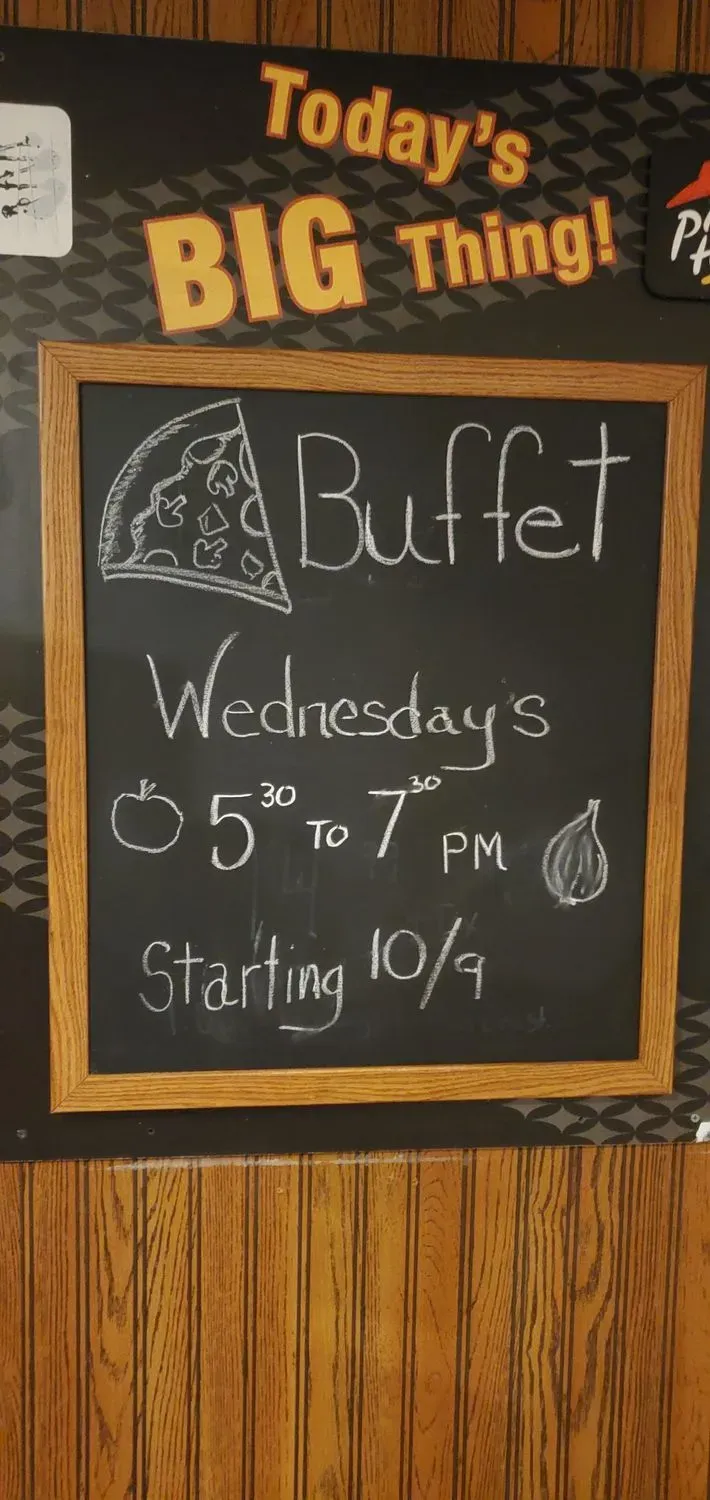 Today's
BIG Thing!
Buffet
Wednesday's
5 30 TO 7 30 PM
Starting 10/9